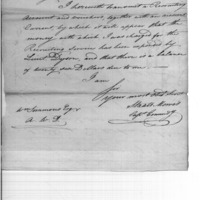 I herewith transmit a Recruiting
account and vouchers, together with an account
Current, by which it will appear that the
money with which I was charged for the
Recruiting service has been expended by
Lieut. Dyson, and that there is a balance
of twenty one Dollars due to me.
I am
Sir
your most Obt Servt
Capt
Wm Simmons Esqr
A. W. D